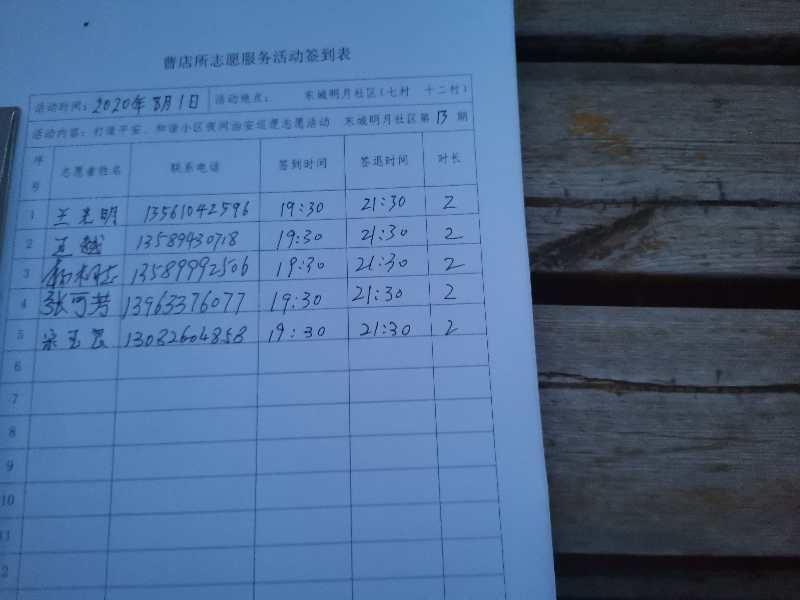 曹店所志愿服务活动签到表
活动时间: 2020年8月1日 活动地点: 东城明月社区(七村 十二村)
活动内容: 打造平安、和谐小区夜间治安巡逻志愿活动 东城明月社区第13期
序号 志愿者姓名 联系电话 签到时间 签退时间 时长
1 兰光明 13561042596 19:30 21:30 2
2 19:30 21:30 2
3 13589992506 19:30 21:30 2
4 张可芳 13963376077 19:30 21:30 2
5 19:30 21:30 2
6
7
8
9
10
11
2